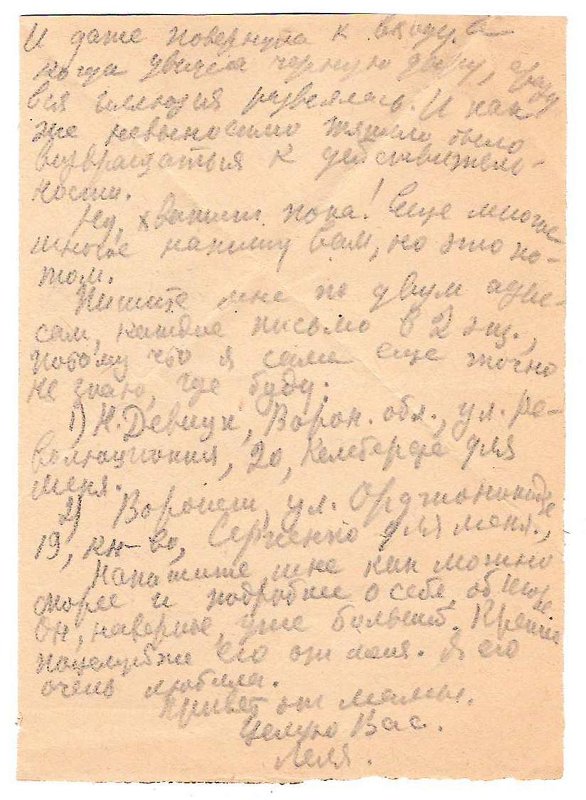 И даже повернула к входу. А
когда увидела черную дыру, сразу
вся иллюзия развеялась. И как
же невыносимо тяжело было
возвращаться к действитель-
ности.
Ну, хватит пока! Еще многое
многое напишу Вам, но это по-
том.
Пишите мне по двум адре-
сам, каждое письмо в 2 экз.,
потому что я сама еще точно
не знаю, где буду.
1) Н. Девицк, Ворон. обл., ул. Ре-
волюционная, 20, для
меня.
2) Воронеж, ул. Орджоникидзе
19, кн-во, Сергненко для меня.
Напишите мне как можно
скорее и подробнее о себе, об
Он, наверное, уже большой. Крепко
поцелуйте его от меня. Я его
очень любила.
Привет от мамы.
Целую Вас.
Леля.